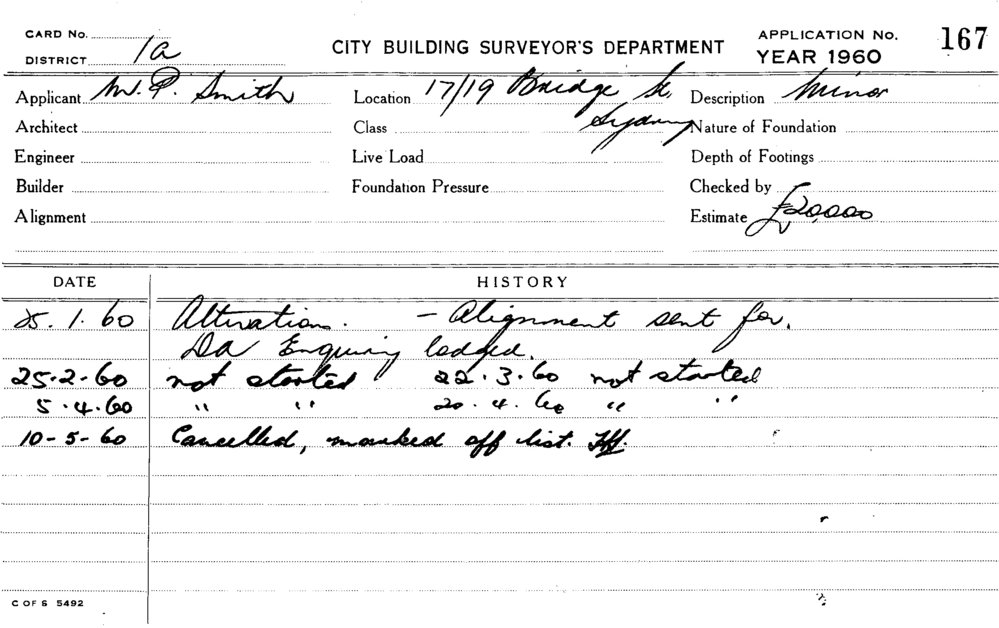 CARD No.
DISTRICT 1a
CITY BUILDING SURVEYOR'S DEPARTMENT
APPLICATION No. 167
YEAR 1960
Applicant W. P. Smith Location 17/19 Bridge St. Description Minor
Architect Class Sydney Nature of Foundation
Engineer Live Load Depth of Footings
Builder Foundation Pressure Checked by
Alignment Estimate £20,000
DATE HISTORY
25.1.60 Alteration. - Alignment sent for.
DA Enquiry lodged.
25-2-60 not started 22.3.60 not started
5.4.60 " " 20.4.60 " "
10-5-60 Cancelled, marked off list.
C OF S 5492